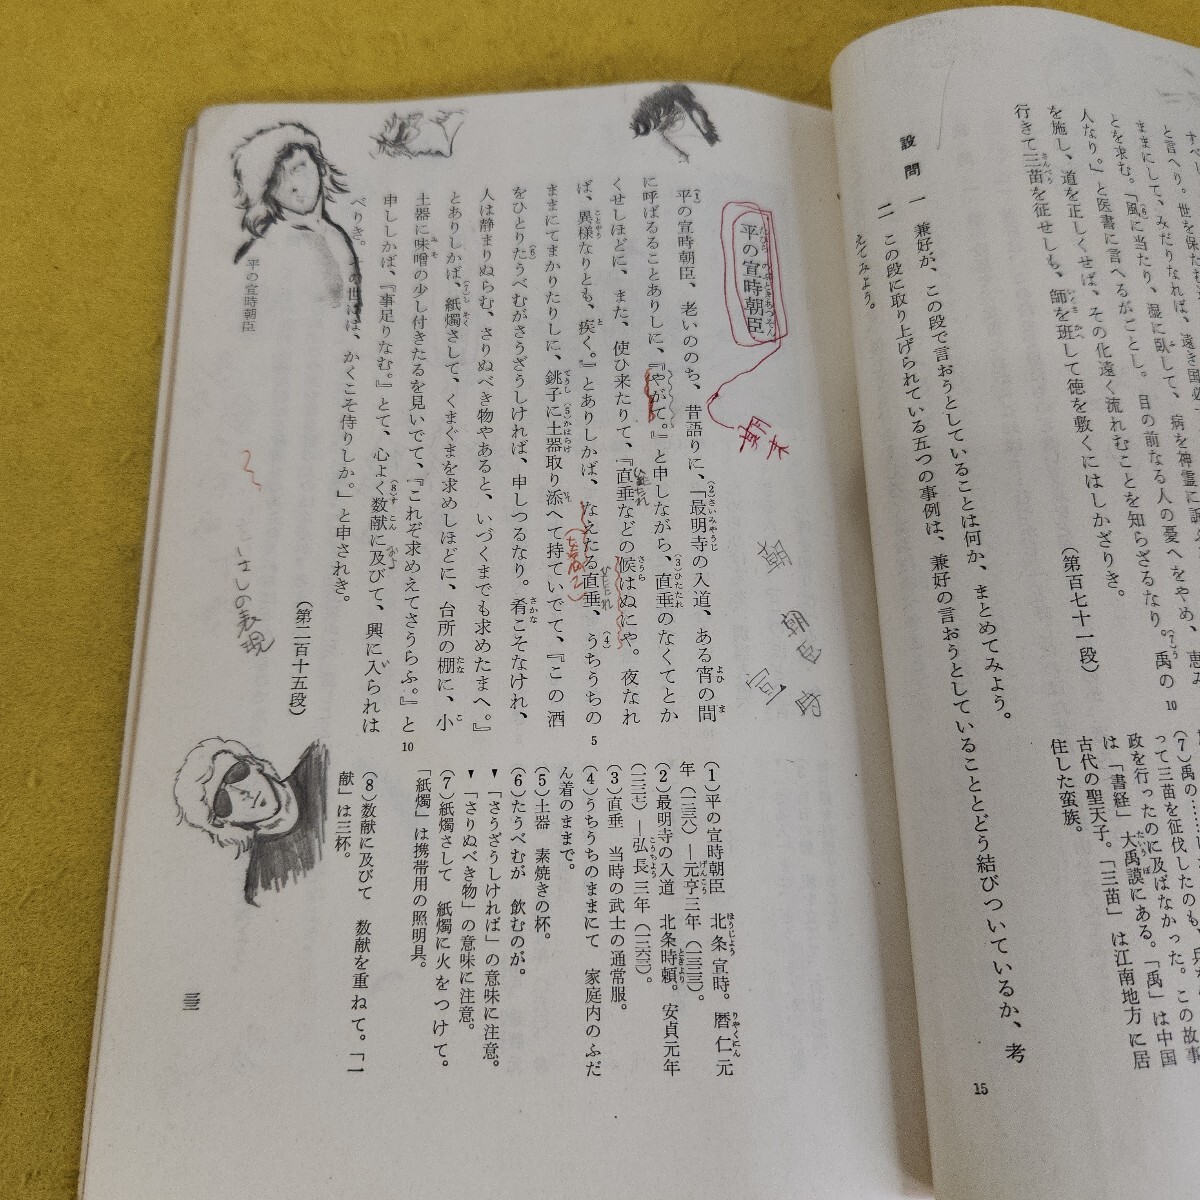 すべし。
と言へり。世を保たむ
ままにして、みだりなれば、遠き国必
とを求む。「風に当たり、湿に臥して、病を神霊に訴
人なり。」と医書に言へるがごとし。目の前なる人の憂へをやめ、恵み
を施し、道を正しくせば、その化遠く流れむことを知らざるなり。禹の
行きて三苗を征せしも、師を班して徳を敷くにはしかざりき。
(第百七十一段)
設問 一 兼好が、この段で言おうとしていることは何か、まとめてみよう。
二 この段に取り上げられている五つの事例は、兼好の言おうとしていることとどう結びついているか、考
えてみよう。
10
15
(7)禹の……
って三苗を征伐したのも、
政を行ったのに及ばなかった。この故事
は「書経」大禹謨にある。「禹」は中国
古代の聖天子。「三苗」は江南地方に居
住した蛮族。
平の宣時朝臣
平の宣時朝臣、老いののち、昔語りに、「最明寺の入道、ある宵の間
に呼ばるることありしに、『やがて。』と申しながら、直垂のなくてとか
くせしほどに、また、使ひ来たりて、『直垂などの候はぬにや。夜なれ
ば、異様なりとも、疾く。』とありしかば、なえたる直垂、うちうちの
ままにてまかりたりしに、銚子に土器取り添へて持ていでて、『この酒
をひとりたうべむがさうざうしければ、申しつるなり。肴こそなけれ、
人は静まりぬらむ、さりぬべき物やあると、いづくまでも求めたまへ。』
とありしかば、紙燭さして、くまぐまを求めしほどに、台所の棚に、小
土器に味噌の少し付きたるを見いでて、『これぞ求めえてさうらふ。』と
申ししかば、『事足りなむ。』とて、心よく数献に及びて、興に入られは
べりき。その世には、かくこそ侍りしか。」と申されき。
(第二百十五段)
5
10
平の宣時朝臣
朝臣
宣
時
はしの表現
(1)平の宣時朝臣 北条宣時。暦仁元
年(一二三八)―元亨三年(一三二三)。
(2)最明寺の入道 北条時頼。安貞元年
(一二二七)―弘長三年(一二六三)。
(3)直垂 当時の武士の通常服。
(4)うちうちのままにて 家庭内のふだ
ん着のままで。
(5)土器 素焼きの杯。
(6)たうべむが 飲むのが。
▼「さうざうしければ」の意味に注意。
▼「さりぬべき物」の意味に注意。
(7)紙燭さして 紙燭に火をつけて。
「紙燭」は携帯用の照明具。
(8)数献に及びて 数献を重ねて。「一
献」は三杯。